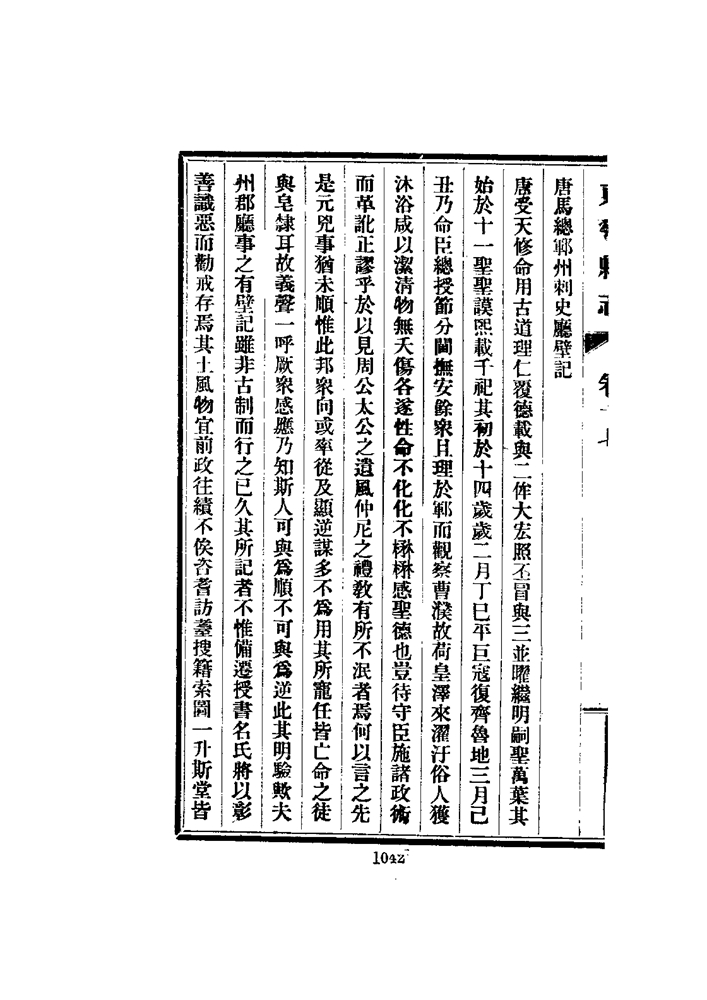 唐馬總鄆州刺史廳壁記
唐受天修命用古道理仁覆德載與二侔大宏照丕冒與三並曜繼明嗣聖萬葉其
始於十一聖聖謨熙載千祀其初於十四歲歲二月丁巳平巨寇復齊魯地三月己
丑乃命臣總授節分閫撫安餘衆且理於鄆而觀察曹濮故荷皇澤來濯汙俗人獲
沐浴咸以潔清物無夭傷各遂性命不化化不棥棥感聖德也豈待守臣施諸政術
而革訛正謬乎於以見周公太公之遺風仲尼之禮教有所不泯者焉何以言之先
是元兇事猶未順惟此邦衆向或率從及顯逆謀多不爲用其所寵任皆亡命之徒
與皂隸耳故義聲一呼厥衆感應乃知斯人可與爲順不可與爲逆此其明驗歟夫
州郡廳事之有壁記雖非古制而行之已久其所記者不惟備遷授書名氏將以彰
善識惡而勸戒存焉其土風物宜前政往績不俟咨耆訪耋搜籍索圖一升斯堂皆
1042